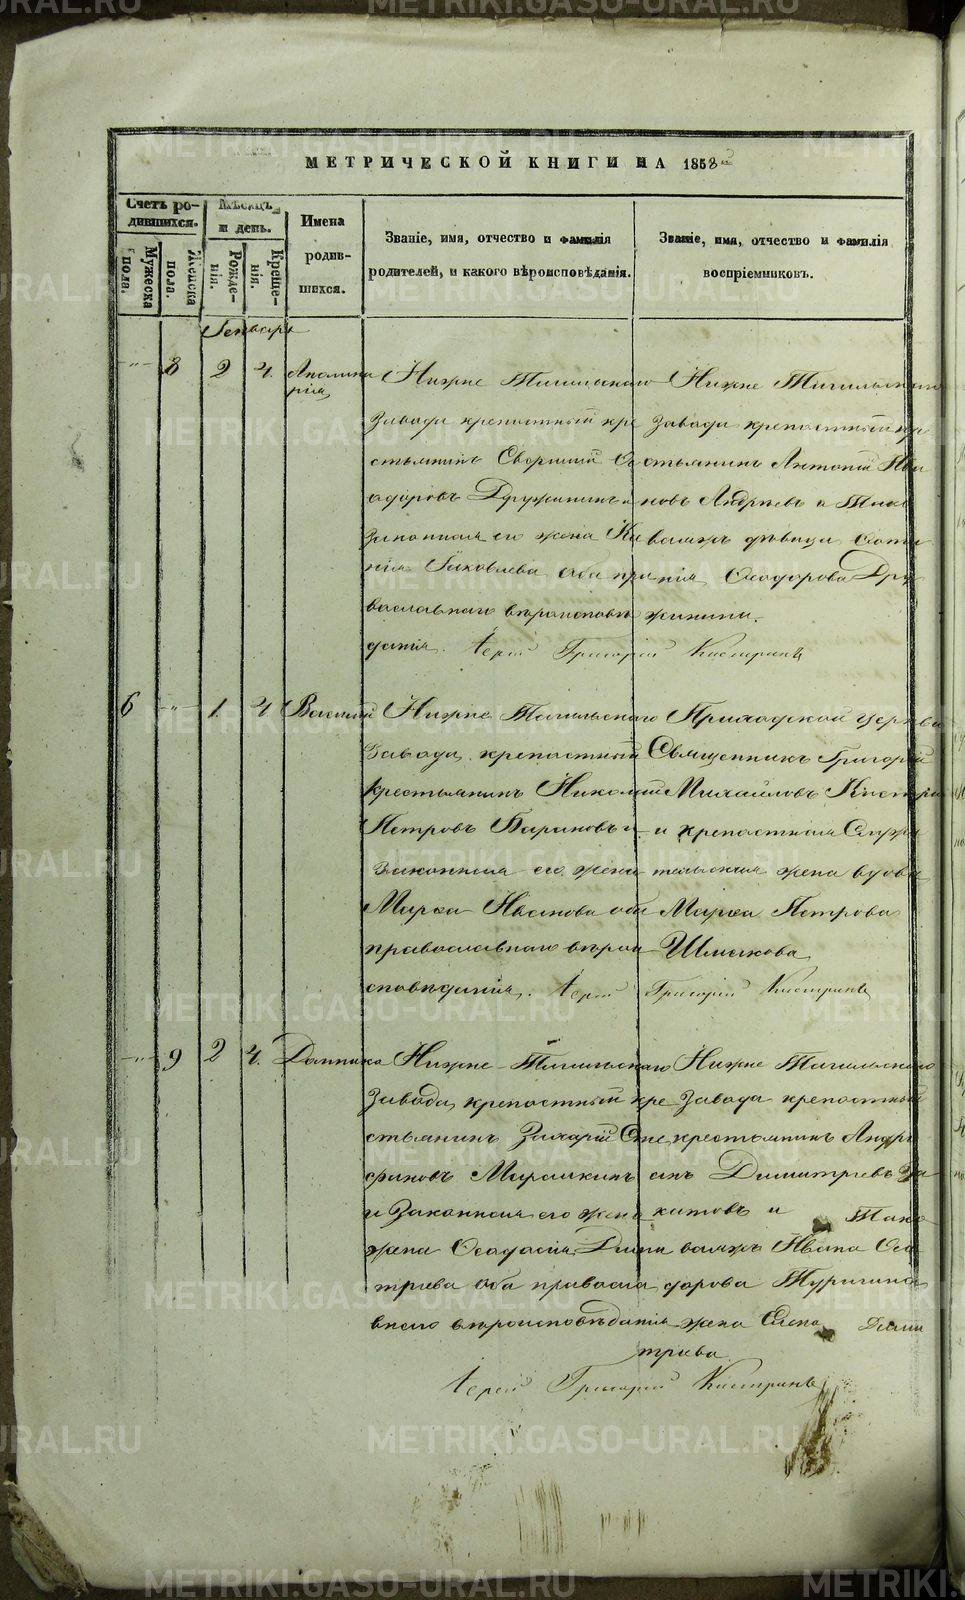 METRIKI.GASO-URAL.RU
МЕТРИЧЕСКОЙ КНИГИ НА 1858
Счетъ ро-
дившихся.
Мужеска
пола.
Женска
пола.
Мѣсяцъ
и день.
Рожде-
нія.
Креще-
нія.
Имена
родив-
шихся.
Званіе, имя, отчество и фамилія
родителей, и какого вѣроисповѣданія.
Званіе, имя, отчество и фамилія
воспріемниковъ.
Генваръ
8 2 4. Аполина
рія
Нижне Тагильскаго
завода крепостный кре
стьянинъ
одоровъ Дружининъ и
законная его жена
нія Яковлева оба пра
вославнаго вѣроисповѣ
данія.
Нижне Тагильскаго
завода крепостный кре
стьянинъ Антоній Ива
новъ Андреевъ и Тамо
вамжъ дѣвица
нія Ѳеодорова Дру
жинина.
Іерей Григорій Кастринъ
6 1. 4. Василій
Нижне Тагильскаго
завода крепостный
крестьянинъ Николай
Петровъ Бариновъ и
законная его жена
Марѳа Иванова оба
православнаго вѣрои
сповѣданія.
Приходской церкви
Священникъ Григорій
Михайловъ Кастри
и крепостная Служи
тельская жена вдова
Марѳа Петрова
Шмакова
Іерей Григорій Кастринъ
9 2 4. Домника
Нижне-Тагильскаго
завода крепостный кре
стьянинъ Захарій Сте
фановъ Мурашкинъ
и Законная его жена
жена Ѳеодосія Дими
трева оба правосла
внаго вѣроисповѣданія
Нижне Тагильскаго
завода крепостный
крестьянинъ Андре
анъ Димитревъ За
хатовъ и Тамо
вамжъ Ивана Ѳео
дорова Туригина
жена Елена Дими
трева
Іерей Григорій Кастринъ